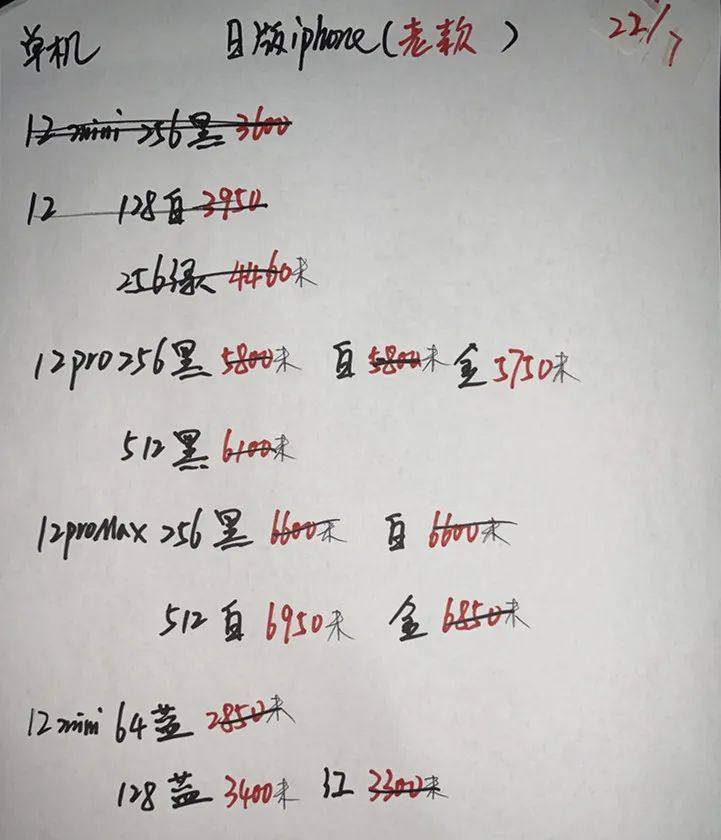 单机 日版iphone(老款) 22/7
12 mini 256黑 3600
12 128白 3950
256绿 4460未
12pro 256黑 5800未 白 5800未 金 5750未
512黑 6100未
12proMax 256黑 6600未 白 6600未
512白 6950未 金 6850未
12mini 64蓝 2850未
128蓝 3400未 红 3300未